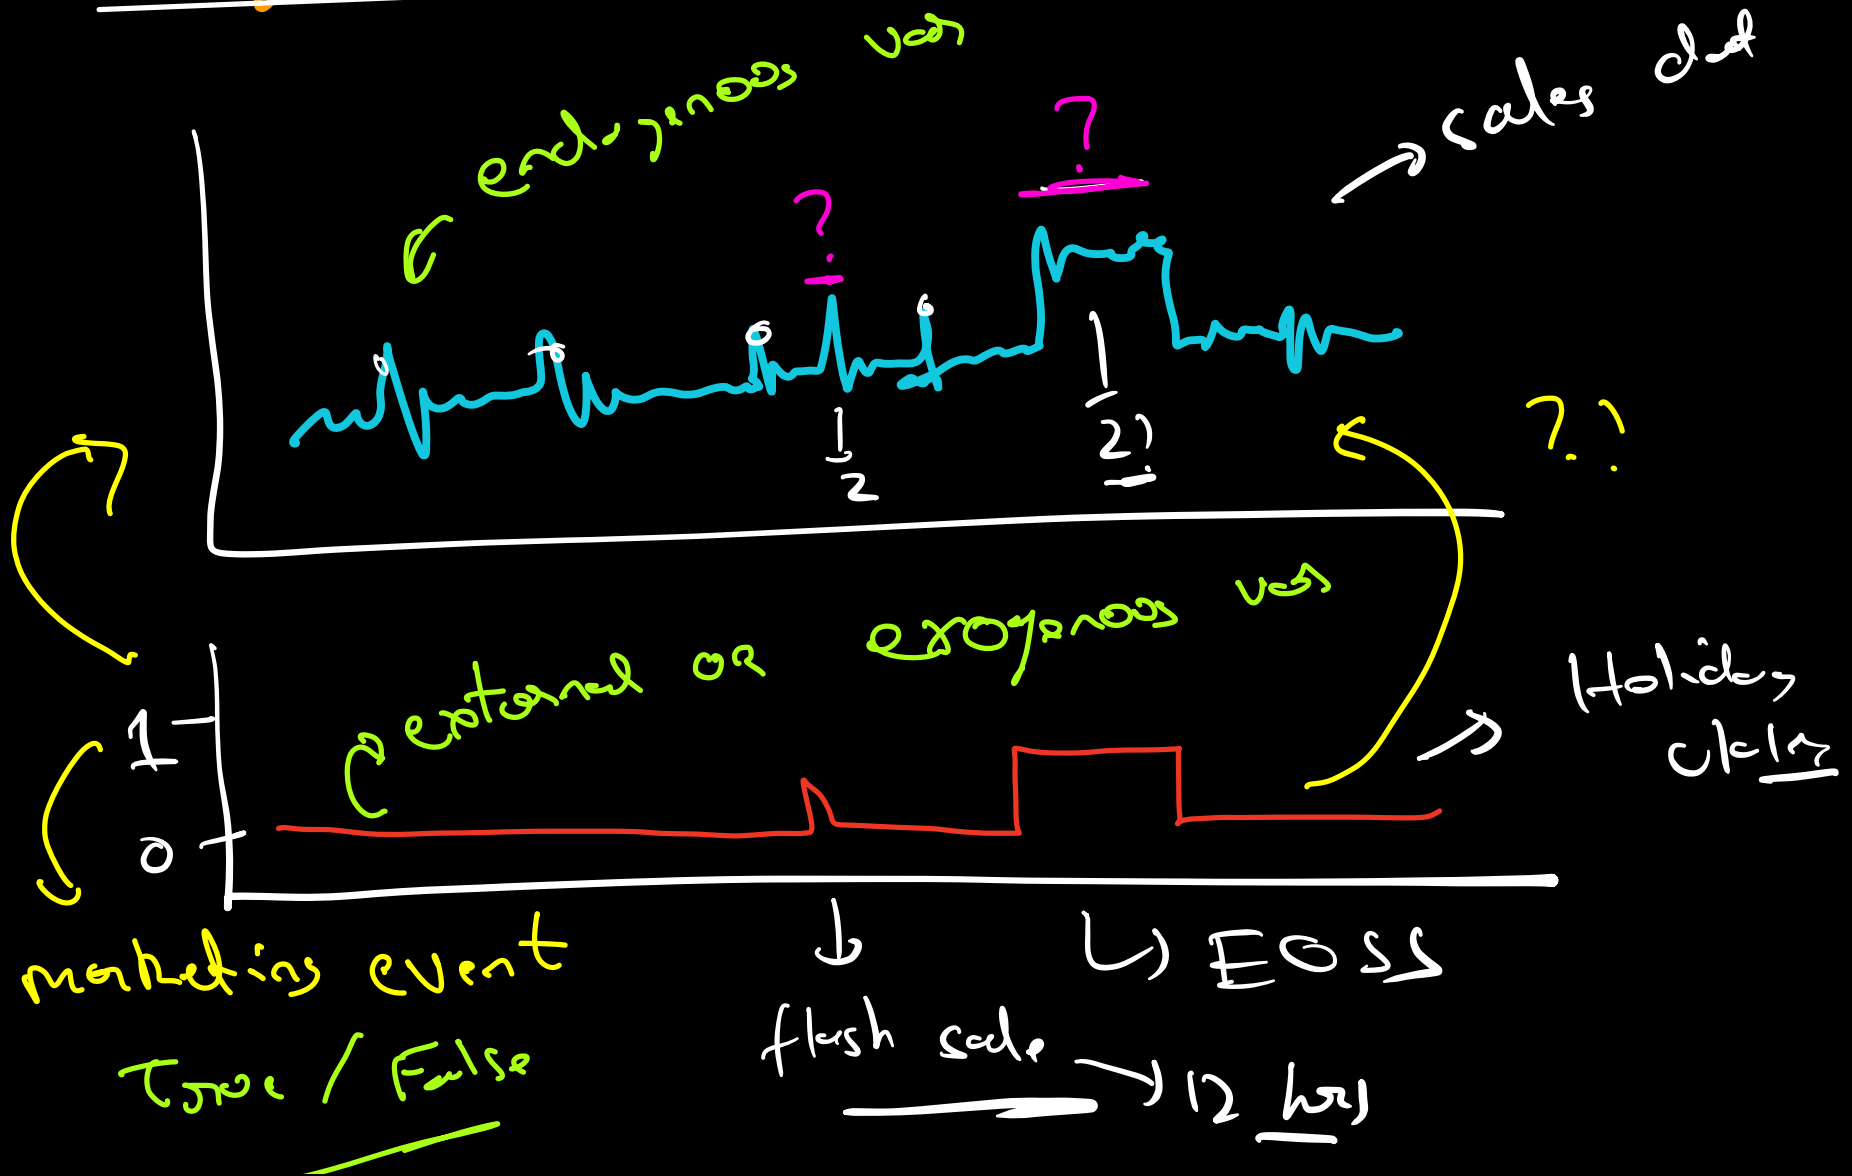 endogenous var
sales dat
?
?
1
2
1
2?
??
external or exogenous var
Holiday
1
0
marketing event
True / False
flash sale → 12 hrs
EOSS